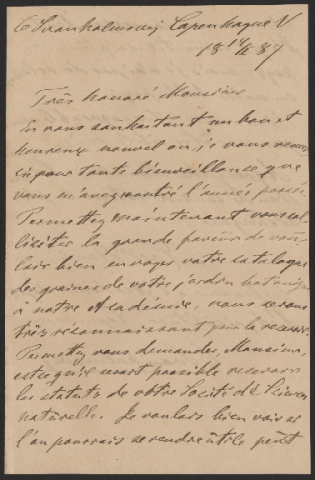 6 Svanholmsvej Copenhague V
18 14/II 87
Très honoré Monsieur
En vous souhaitant un bon et
heureux nouvel an, je vous remer
cie pour toute bienveillance que
vous m'avez montré l'année passée.
Permettez maintenant vous sol
liciter la grande faveur de vou
loir bien envoyer votre catalogue
des graines de votre jardin botanique
à notre Académie, nous serons
très réconnaissant pour la recevoir.
Permettez vous demander, Monsieur,
est-ce qu'il serait possible recevoir
les statuts de votre Société d'
naturelle. Je voulais bien voir si
l'on pourrais se rendre utile peut